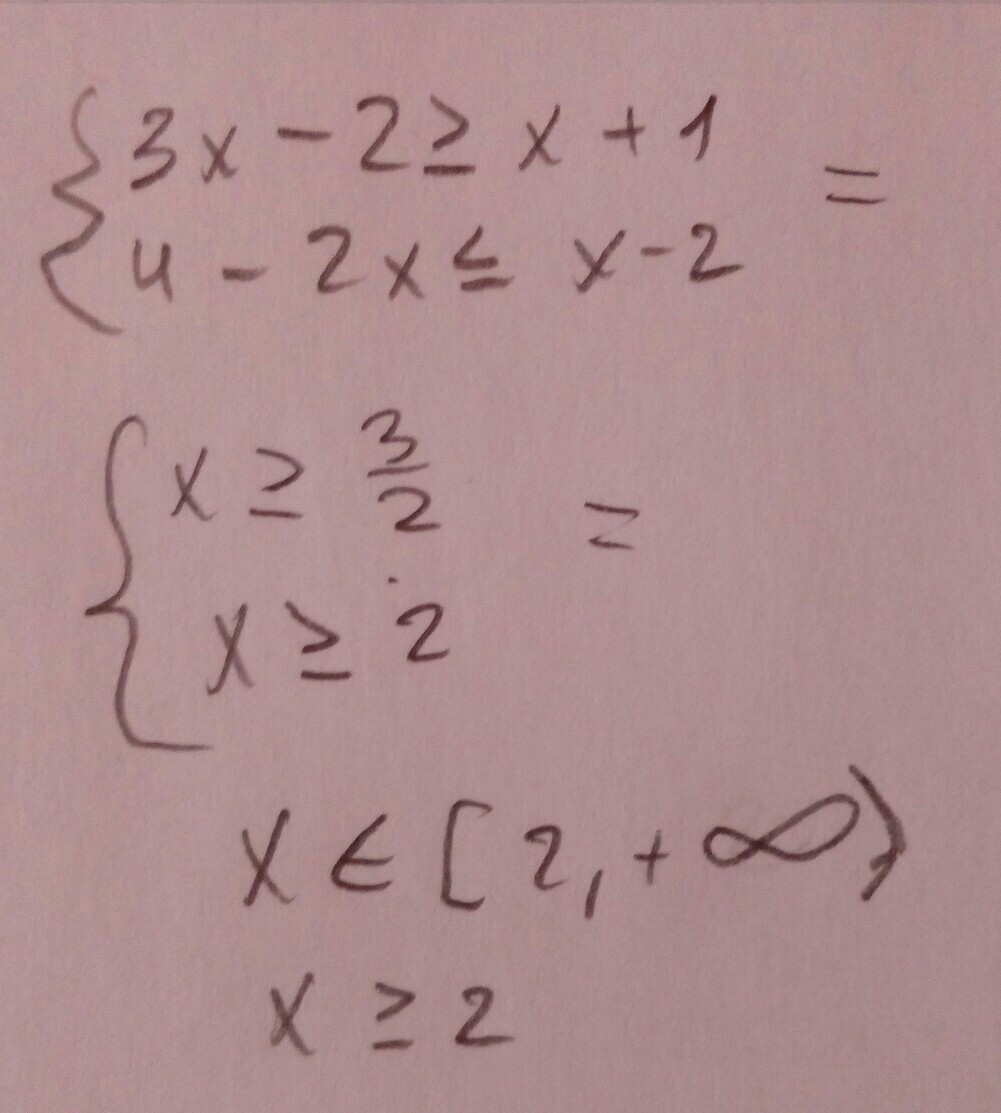 {3x - 2 ≥ x + 1 =
4 - 2x ≤ x - 2
{x ≥ 3/2 =
x ≥ 2
x ∈ [2, +∞)
x ≥ 2